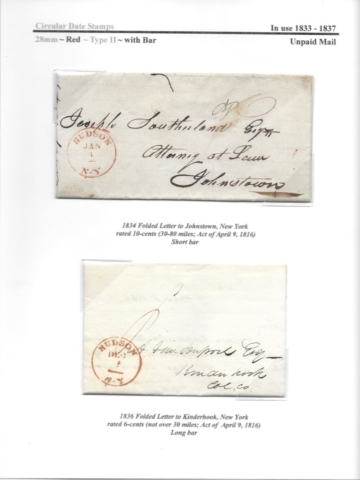 Circular Date Stamps
In use 1833 - 1837
28mm ~ Red ~ Type II ~ with Bar
Unpaid Mail
HUDSON
JAN
N-Y
Joseph Southerland Esqr
Attorney at Law
Johnstown
1834 Folded Letter to Johnstown, New York
rated 10-cents (30-80 miles; Act of April 9, 1816)
Short bar
HUDSON
N-Y
Esq
Kinderhook
Col. co
1836 Folded Letter to Kinderhook, New York
rated 6-cents (not over 30 miles; Act of April 9, 1816)
Long bar